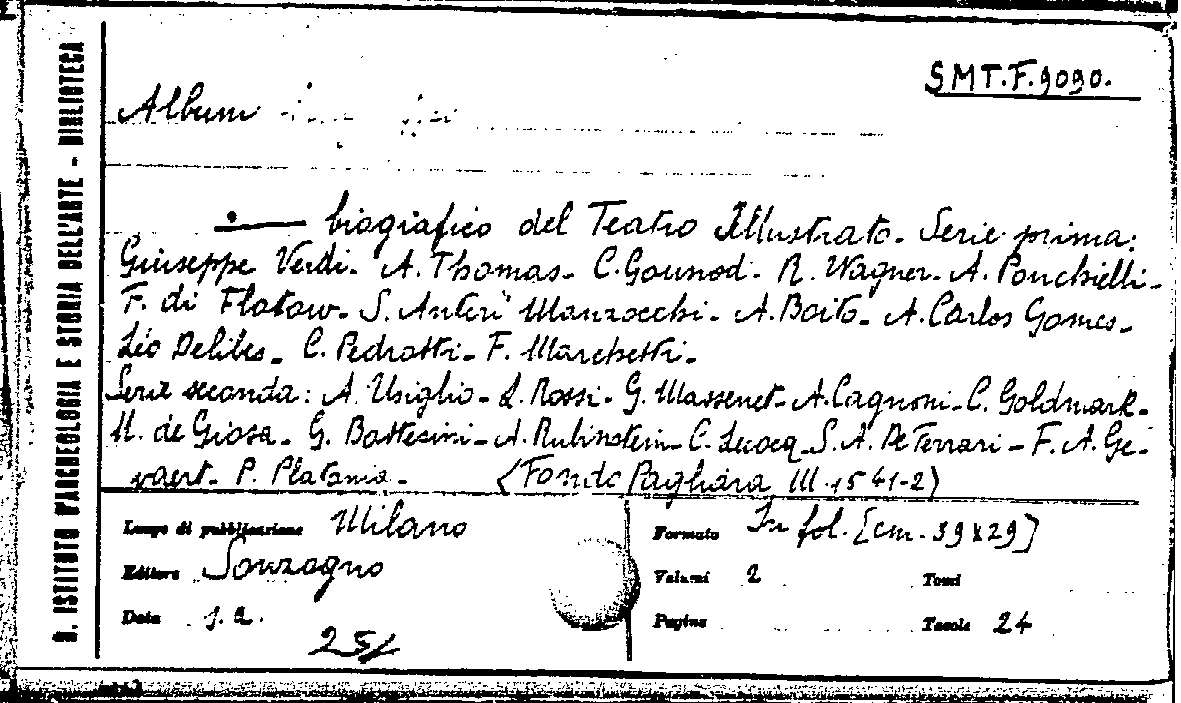 SMT.F.9090.
Album
R. ISTITUTO D'ARCHEOLOGIA E STORIA DELL'ARTE - BIBLIOTECA
— biografico del Teatro Illustrato. Serie prima:
Giuseppe Verdi - A. Thomas - C. Gounod - R. Wagner - A. Ponchielli -
F. di Flotow - S. Auteri Manzocchi - A. Boito - A. Carlos Gomes -
Léo Delibes - C. Pedrotti - F. Marchetti -
Serie seconda: A. Usiglio - L. Rossi - G. Massenet - A. Cagnoni - C. Goldmark -
N. de Giosa - G. Bottesini - A. Rubinstein - C. Lecocq - S. A. De Ferrari - F. A. Ge-
vaert - P. Platania - (Fondo Pagliara III.1541-2)
Luogo di pubblicazione Milano
Editore Sonzogno
Data s.a.
25/
Formato In fol. [cm. 39x29]
Volumi 2 Tomi
Pagine Tavole 24